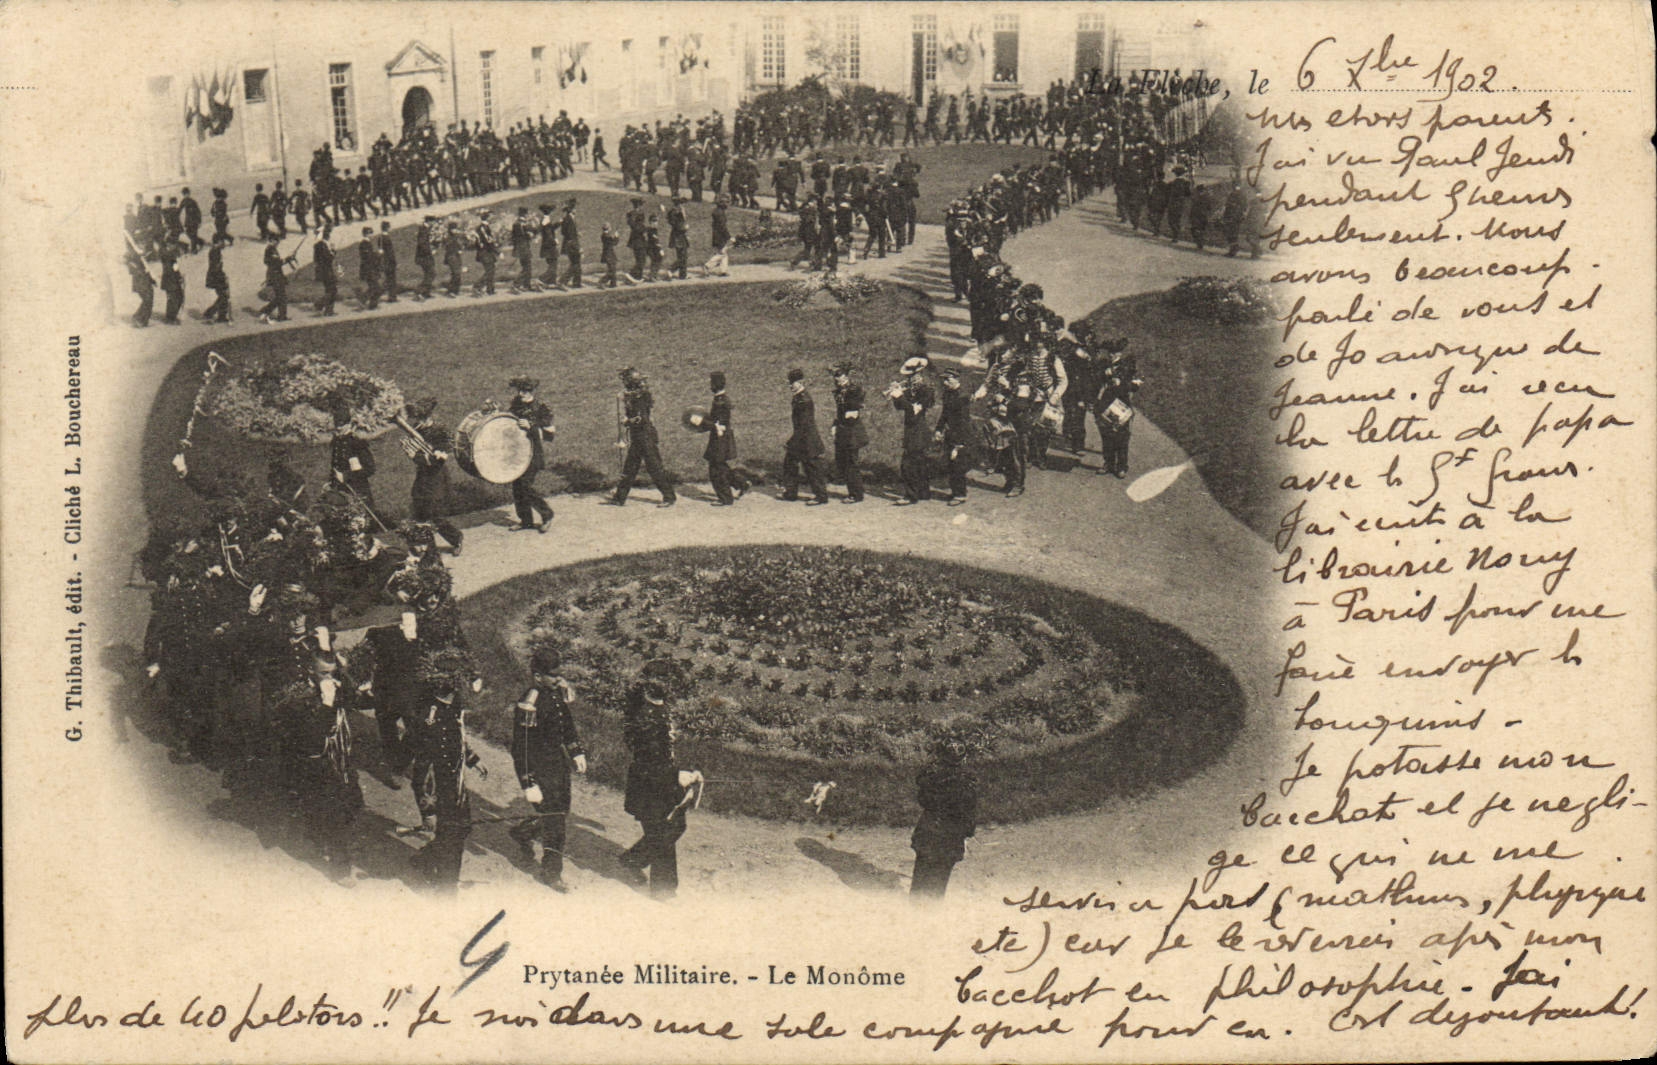 La Flèche, le 6 Xbre 1902.
Mes chers parents.
J'ai vu Paul Jeudi
pendant 9 heures
seulement. Nous
avons beaucoup
parlé de vous et
de de
Jeanne. J'ai recu
la lettre de papa
avec les francs.
J'ai écrit à la
librairie Nony
à Paris pour me
faire envoyer les
bouquins -
Je potasse mon
bacchot et je negli-
ge ce qui ne me
servira pas (mathem, physique
etc) car je le reverrai après mon
bacchot en philosophie. J'ai
plus de 40 pelotons!! Je suis dans une sale compagnie pour ca. C'est degoutant!
4
Prytanée Militaire. - Le Monôme
G. Thibault, édit. - Cliché L. Bouchereau